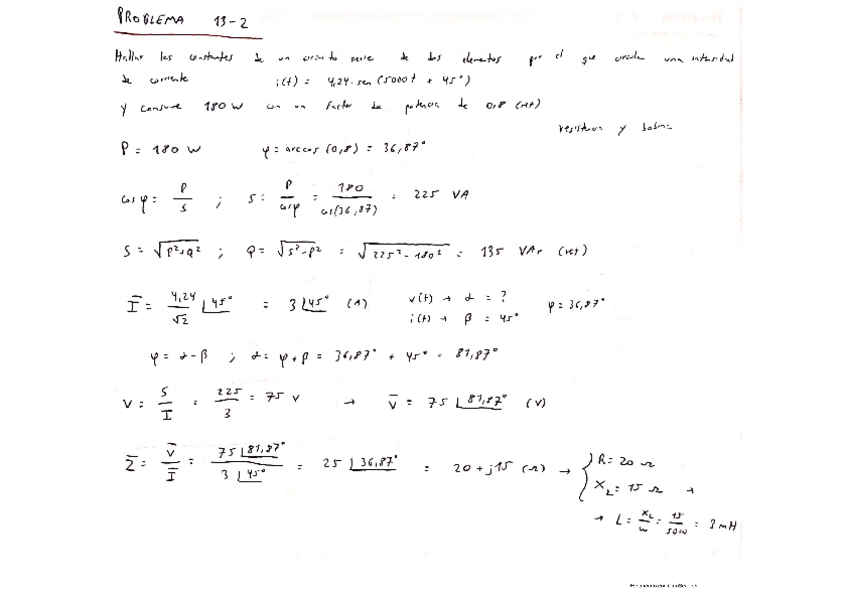 PROBLEMA 13-2
Hallar las constantes de un circuito serie de dos elementos por el que circula una intensidad
de corriente i(t) = 4,24·sen(5000t + 45°)
y consume 180 W con un factor de potencia de 0,8 (ret)
resistencia y bobina
P = 180 W φ = arccos (0,8) = 36,87°
cos φ = P/S ; S = P/cosφ = 180/cos(36,87) = 225 VA
S = √(P²+Q²) ; Q = √(S²-P²) = √(225²-180²) = 135 VAr (ret)
Ī = 4,24/√2 ∟45° = 3∟45° (A) v(t) → α = ? φ = 36,87°
i(t) → β = 45°
φ = α-β ; α = φ+β = 36,87° + 45° = 81,87°
V = S/I = 225/3 = 75 V → V̄ = 75∟81,87° (V)
Z̄ = V̄/Ī = 75∟81,87°/3∟45° = 25∟36,87° = 20+j15 (Ω) → { R = 20 Ω
X_L = 15 Ω →
→ L = X_L/w = 15/5000 = 3 mH